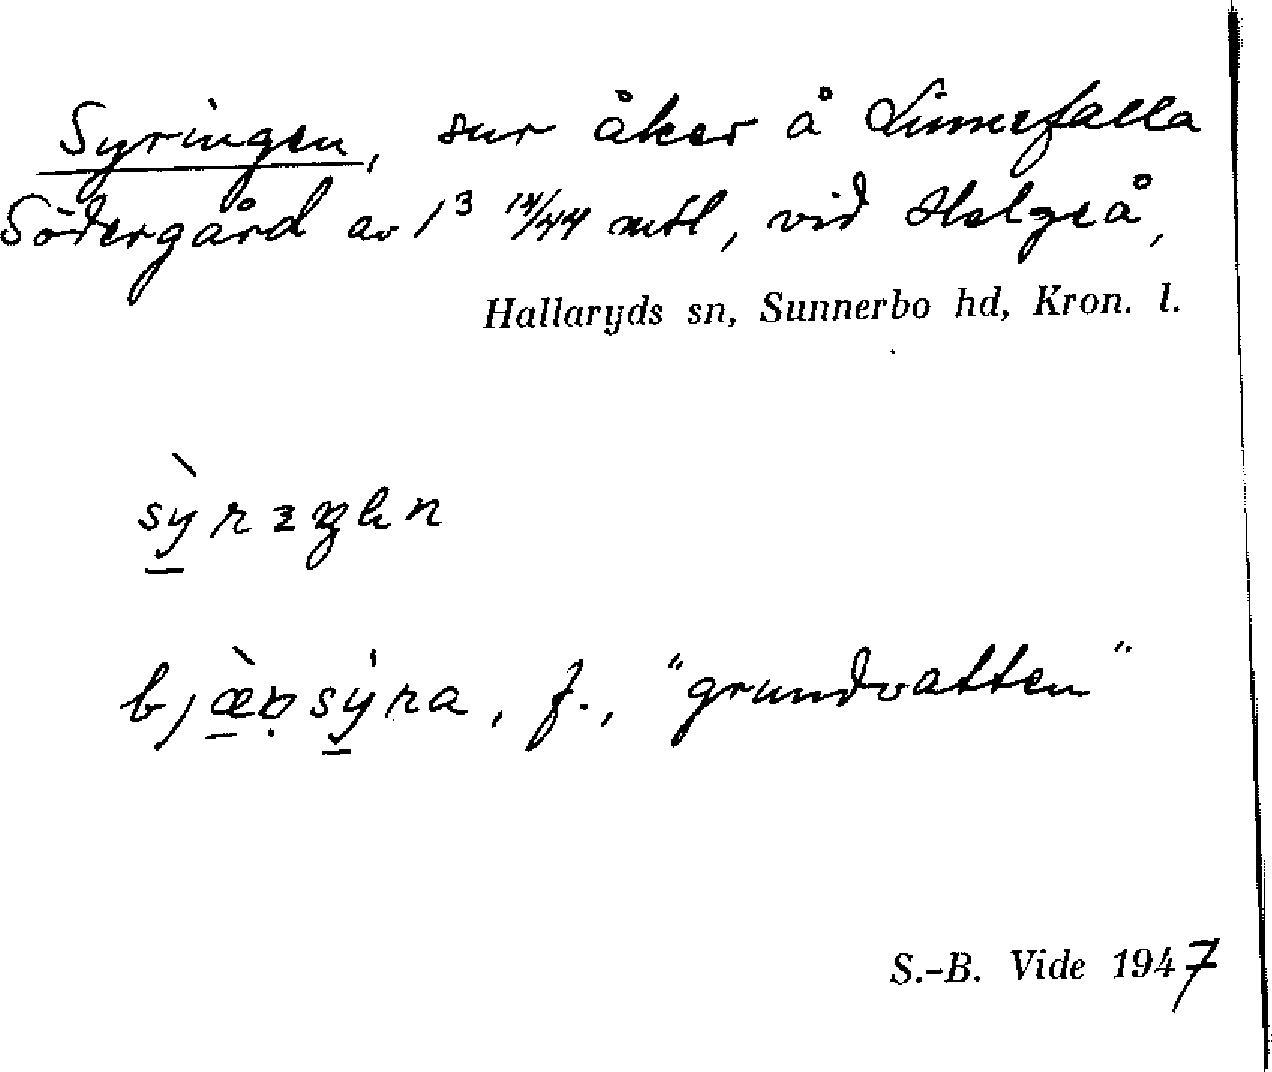 Syringen, sur åker å Linnefalla
Södergård av 1³ 14/44 mtl, vid Helgeå,
Hallaryds sn, Sunnerbo hd, Kron. l.
f., "grundvatten"
S.-B. Vide 1947